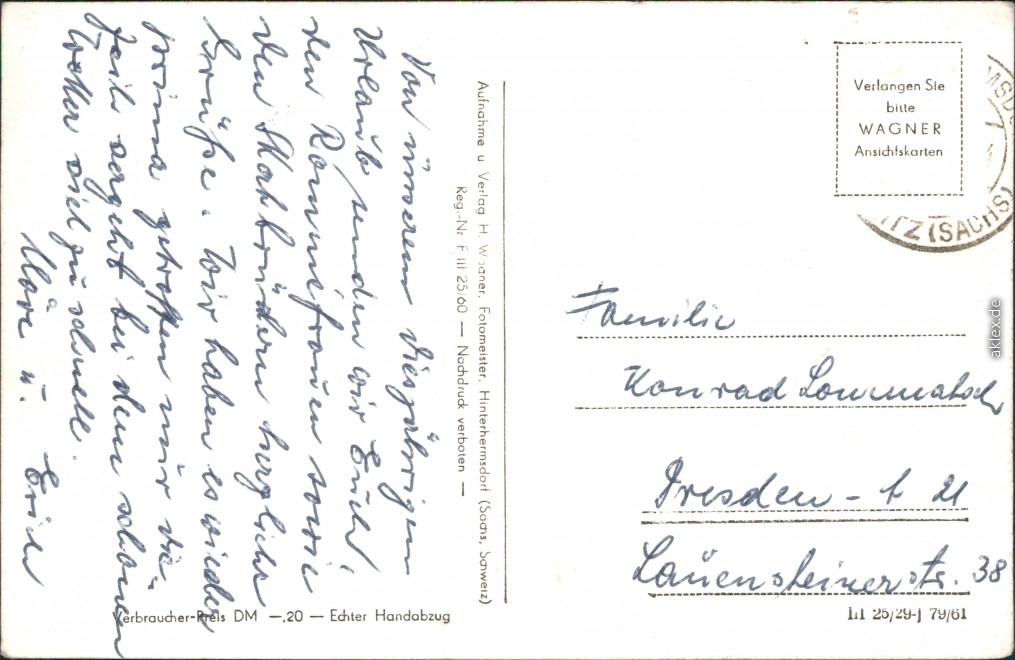 Von unserem diesjährigen
Urlaub senden wir Euch,
den Rommefrauen sowie
den Skatbrüdern herzliche
Grüße. Wir haben es wieder
prima getroffen nur die
Zeit vergeht bei dem schönen
Wetter viel zu schnell.
u. Erich
Aufnahme u Verlag H. Wagner, Fotomeister, Hinterhermsdorf (Sächs. Schweiz)
Reg.-Nr F III 25/60 — Nachdruck verboten —
Verbraucher-Preis DM —,20 — Echter Handabzug
Verlangen Sie
bitte
WAGNER
Ansichtskarten
ITZ (SACHS)
Familie
Konrad Lommatsch
Dresden - A 21
Lauensteiner str. 38
III 25/29-J 79/61
aklex.de